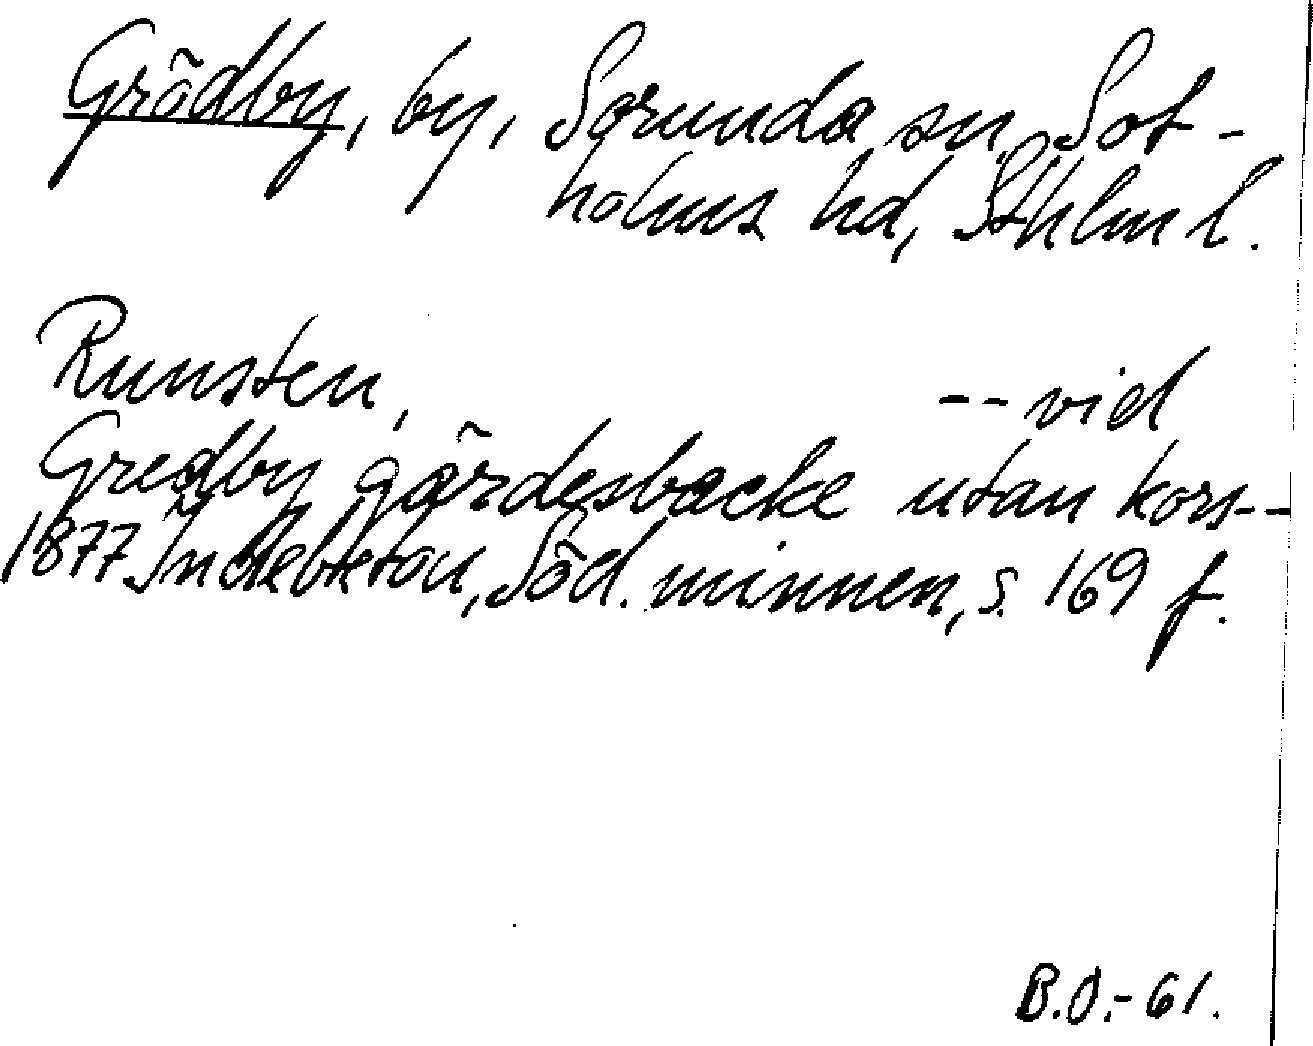 Grödby, by, Sorunda sn, Sot-
holms hd, Sthlm l.
Runsten, -- vid
Gredby gärdesbacke utan kors--
1877 Indebetou, Söd. minnen, s. 169 f.
B.O.-61.